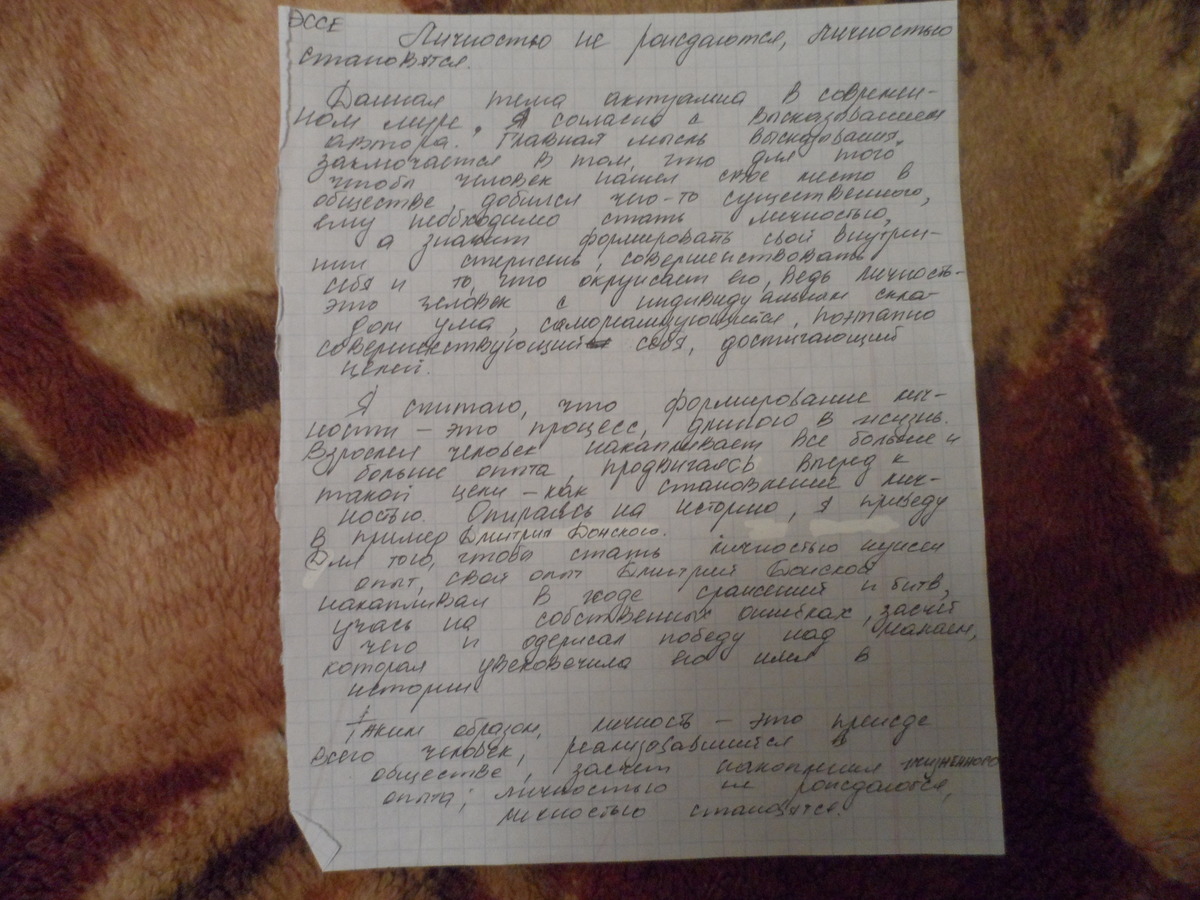 ЭССЕ
Личностью не рождаются, личностью
становятся.
Данная тема актуальна в современ-
ном мире. Я согласна с высказыванием
автора. Главная мысль высказывания,
заключается в том, что для того,
чтобы человек нашел свое место в
обществе, добился чего-то существенного,
ему необходимо стать личностью,
а значит формировать свой внутрен-
ний стержень, совершенствовать
себя и то, что окружает его, ведь личность-
это человек с индивидуальным скла-
дом ума, самореализующийся, поэтапно
совершенствующий себя, достигающий
целей.
Я считаю, что формирование лич-
ности – это процесс, длиною в жизнь.
Взрослея человек накапливает все больше и
больше опыта, продвигаясь вперед к
такой цели – как становление лич-
ностью. Опираясь на историю, я приведу
в пример Дмитрия Донского.
Для того, чтобы стать личностью нужен
опыт, свой опыт Дмитрий Донской
накапливал в ходе сражений и битв,
учась на собственных ошибках, засчёт
чего и одержал победу над Мамаем,
которая увековечила его имя в
истории.
Таким образом, личность – это прежде
всего человек, реализовавшийся в
обществе, засчет накопления жизненного
опыта; личностью не рождаются,
личностью становятся.